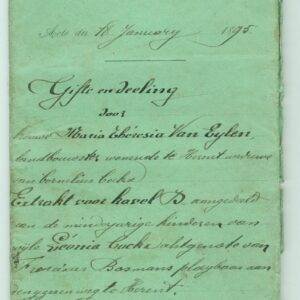 Acte du 18 January 1895
Gifte en deeling
door
vrouwe Maria Theresia Van Eylen,
landbouwster wonende te Herent weduwe
van Cornelius Cockx
Extrakt voor kavel D aangedeeld
aan de minderjarige kinderen van
wijle Leonia Cockx echtgenote van
Franciscus Bosmans
ijzeren weg te Herent.